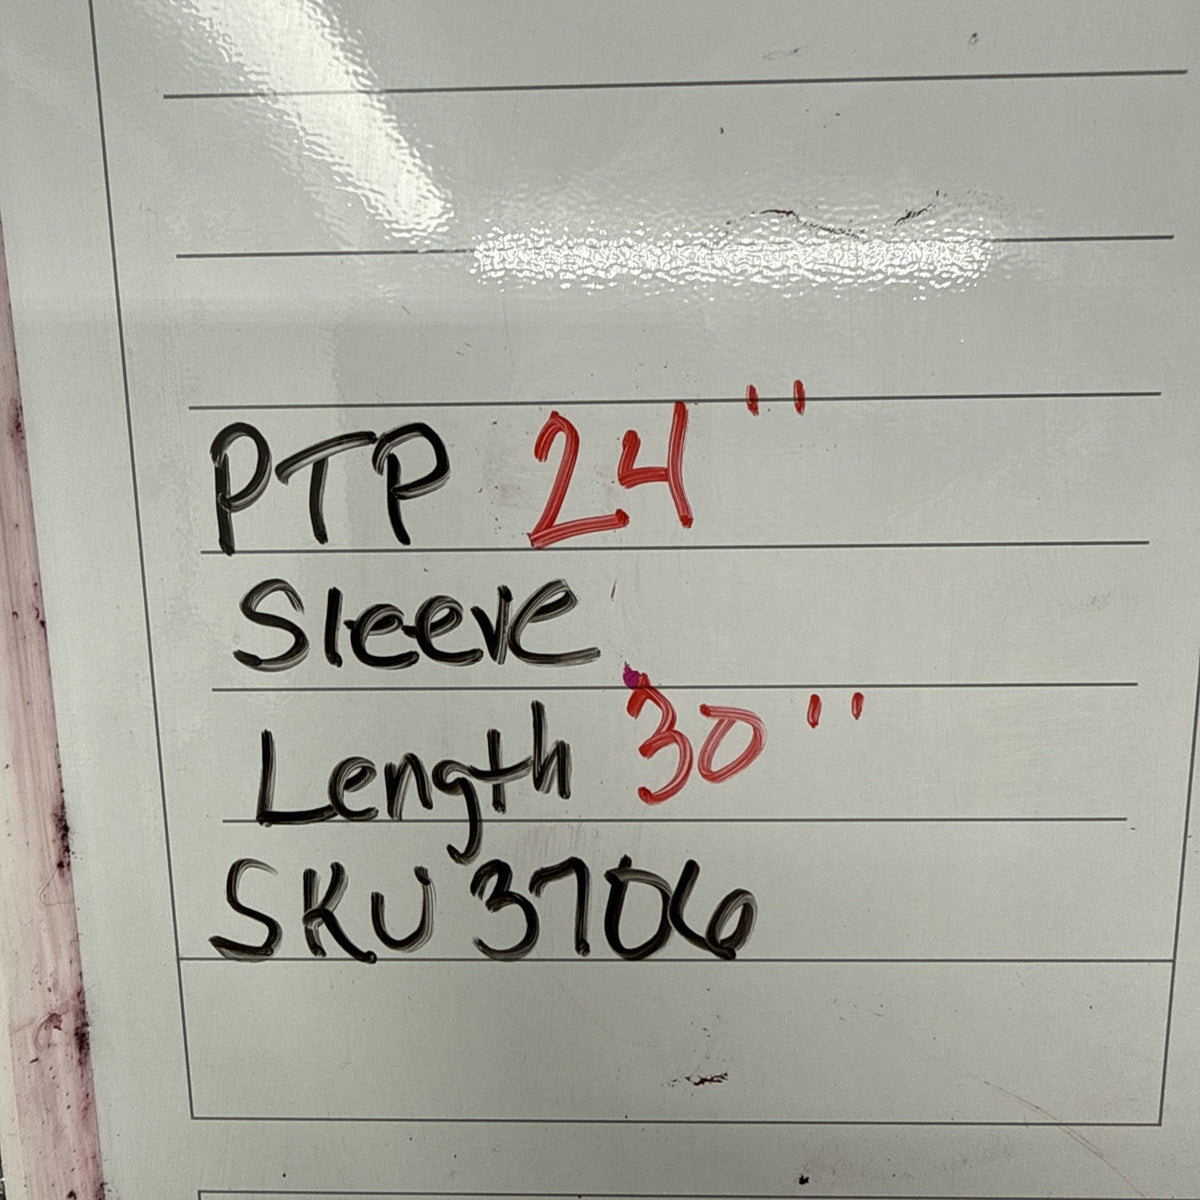 PTP 24"
Sleeve
Length 30"
SKU 3706